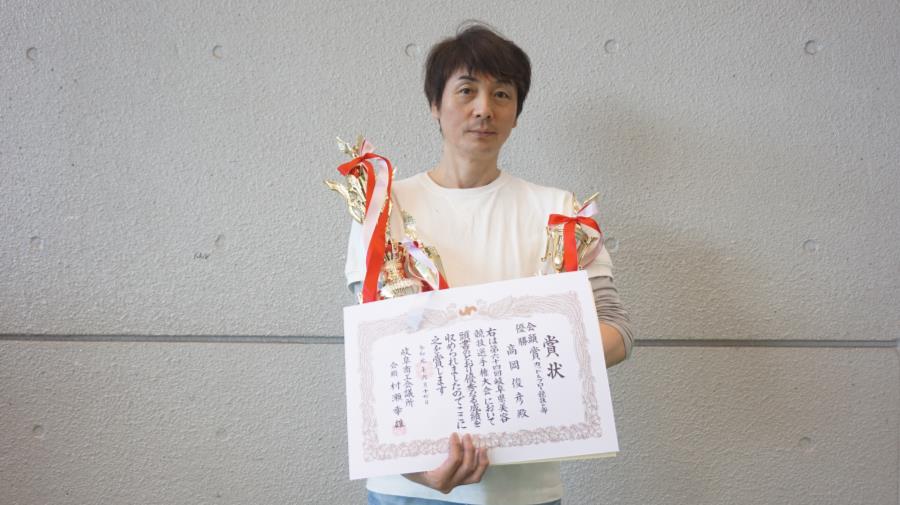 賞状
会頭賞 カット&ブロー競技の部
優勝 高岡俊彦殿
右は第六十四回岐阜県美容
競技選手権大会において
頭書のとおり優秀なる成績を
収められましたのでここに
之を賞します
令和元年六月十七日
岐阜商工会議所
会頭 村瀬幸雄